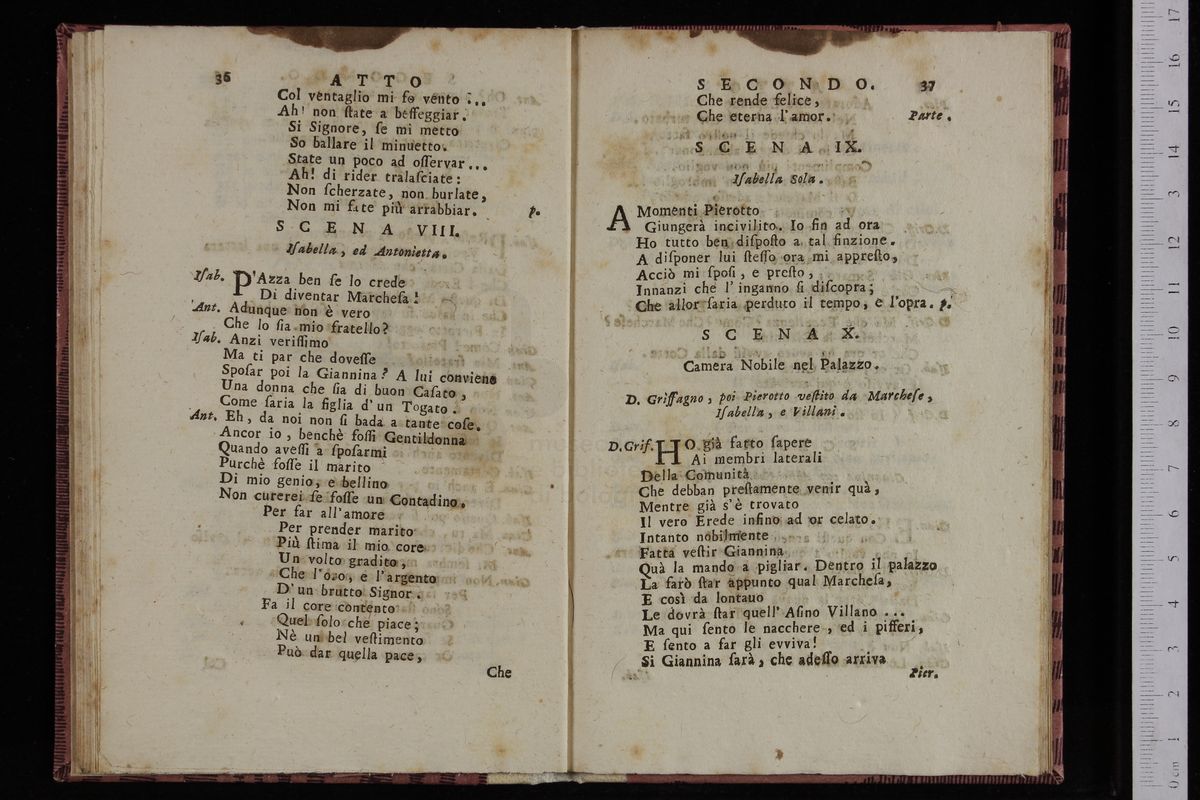 36 ATTO
Col ventaglio mi fo vento ...
Ah! non ſtate a beffeggiar.
Si Signore, ſe mi metto
So ballare il minuetto.
State un poco ad oſſervar...
Ah! di rider tralaſciate:
Non ſcherzate, non burlate,
Non mi fate più arrabbiar. p.
SCENA VIII.
Iſabella, ed Antonietta.
Iſab. P'Azza ben ſe lo crede
Di diventar Marcheſa!
Ant. Adunque non è vero
Che lo ſia mio fratello?
Iſab. Anzi veriſſimo
Ma ti par che doveſſe
Spoſar poi la Giannina? A lui conviene
Una donna che ſia di buon Caſato,
Come ſaria la figlia d'un Togato.
Ant. Eh, da noi non ſi bada a tante coſe.
Ancor io, benchè foſſi Gentildonna
Quando aveſſi a ſpoſarmi
Purchè foſſe il marito
Di mio genio, e bellino
Non curerei ſe foſſe un Contadino.
Per far all'amore
Per prender marito
Più ſtima il mio core
Un volto gradito,
Che l'oro, e l'argento
D'un brutto Signor.
Fa il core contento
Quel ſolo che piace;
Nè un bel veſtimento
Può dar quella pace,
Che
SECONDO. 37
Che rende felice,
Che eterna l'amor. Parte.
SCENA IX.
Iſabella Sola.
A Momenti Pierotto
Giungerà incivilito. Io fin ad ora
Ho tutto ben diſpoſto a tal finzione.
A diſponer lui ſteſſo ora mi appreſto,
Acciò mi ſpoſi, e preſto,
Innanzi che l'inganno ſi diſcopra;
Che allor ſaria perduto il tempo, e l'opra. p.
SCENA X.
Camera Nobile nel Palazzo.
D. Griffagno, poi Pierotto veſtito da Marcheſe,
Iſabella, e Villani.
D.Grif. HO già fatto ſapere
Ai membri laterali
Della Comunità
Che debban preſtamente venir quà,
Mentre già s'è trovato
Il vero Erede infino ad or celato.
Intanto nobilmente
Fatta veſtir Giannina
Quà la mando a pigliar. Dentro il palazzo
La farò ſtar appunto qual Marcheſa,
E così da lontauo
Le dovrà ſtar quell' Aſino Villano ...
Ma qui ſento le nacchere, ed i pifferi,
E ſento a far gli evviva!
Si Giannina ſarà, che adeſſo arriva
Pier.
0 cm 1 2 3 4 5 6 7 8 9 10 11 12 13 14 15 16 17